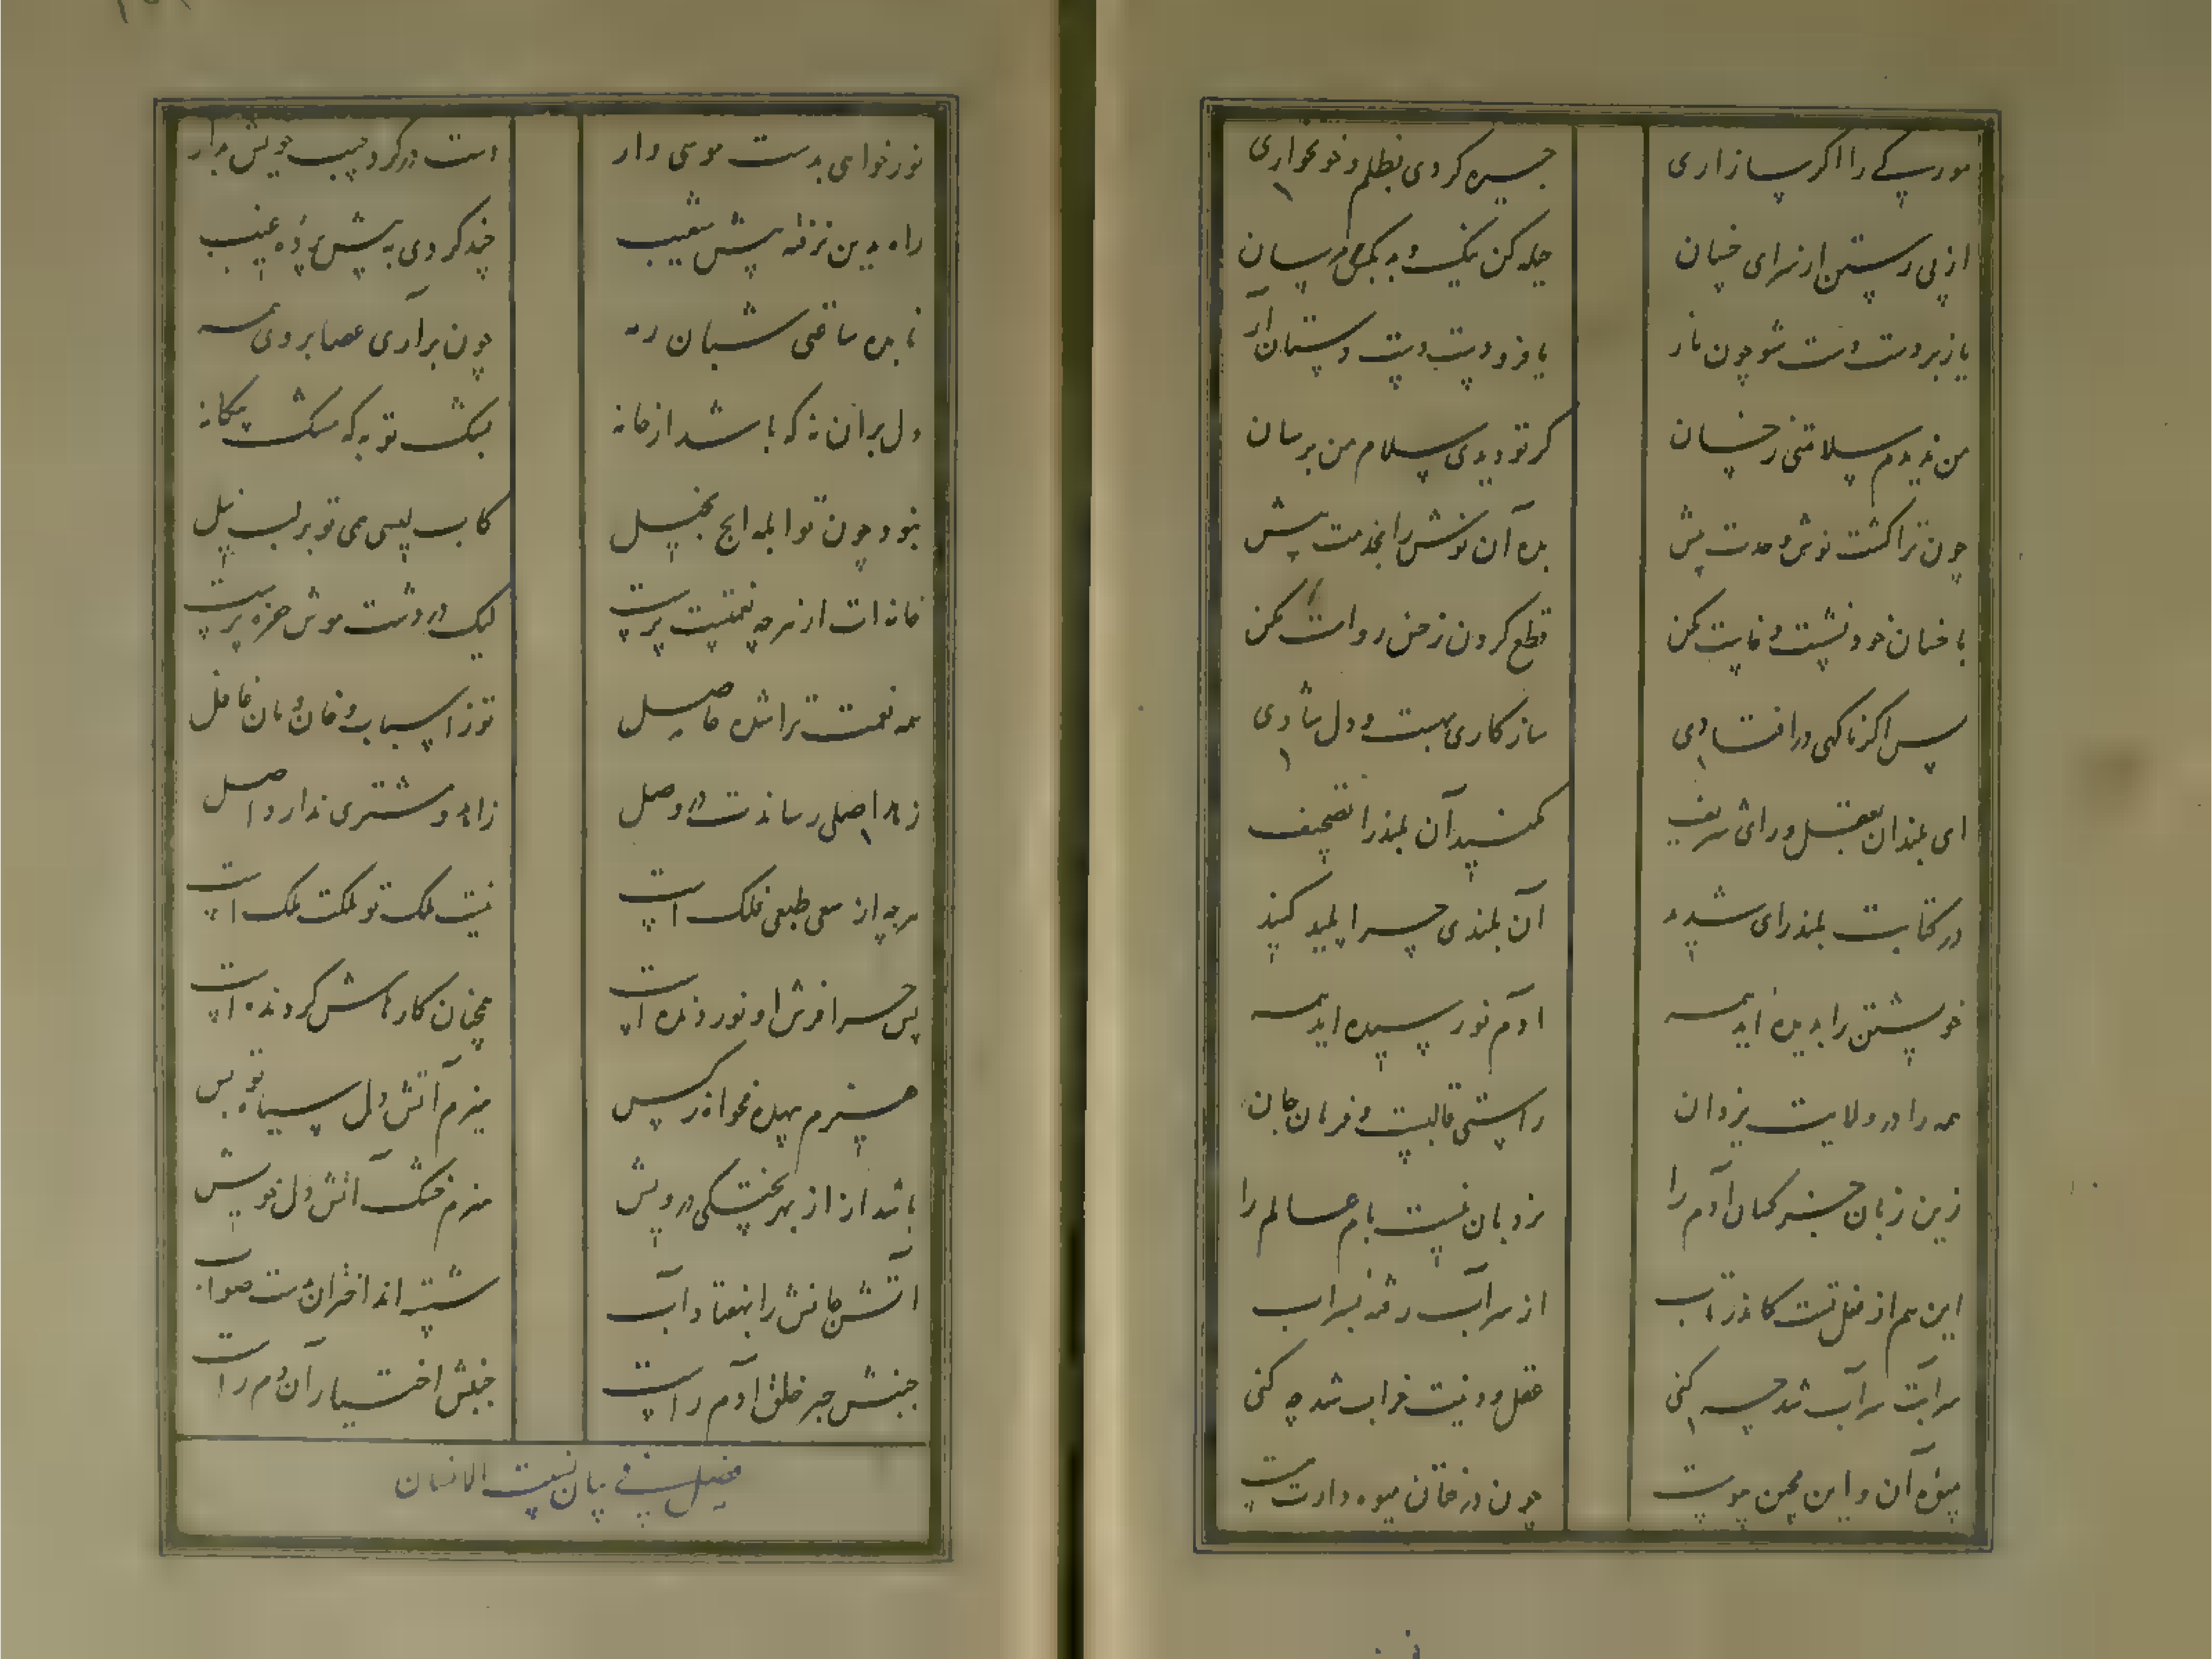 مورکی را اگر بیازاری
چیره کردی بظلم و خونخواری
از پی رستن از سرای خسان
حیله کن نیک و بد بکس مرسان
یا زبردست دست شو چون باز
یا فرودست
من ندیدم سلامتی ز خسان
گر تو دیدی سلام من برسان
چون ترا گشت نوش وحدت پیش
بده آن نوش را بخدمت پیش
با خسان خود نشست و خاست مکن
قطع کردن ز خس رواست مکن
پس اگر ناگهی در افتادی
سازگاری به است و دل شادی
ای بلندان بعقل و رای شریف
مکنید آن بلند را تصحیف
در کتابت بلند رای شدید
آن بلندی چرا پلید کنید
خویشتن را بدیده‌اید همه
آدم نو رسیده‌اید همه
همه را در ولایت یزدان
راستی قالبست و فرمان جان
زین زبان جز کمان آدم را
نردبان نیست بام عالم را
این هم از غفلتست کاندر تاب
از سر آب رفته بسراب
سرابت سرآب شد چه کنی
عقل و دینت خراب شد چه کنی
میوه آن و این همین پوست
چون درختان میوه دارت
نور خواهی بدست موسی وار
دست در گرد جیب خویش برآر
راه دین نزنه پیش شعیب
چند گردی به پیش پرده غیب
نابده ساقی شبان رمه
چون برآری عصا بروی همه
دل بر آن نه که باشد از خانه
سگ تو به که سگ بیگانه
بنود چون تو ابله ایچ بخیل
کاب لیسی همی تو بر لب نیل
خانه‌ات از هرچه نعمتیست پرست
لیک در دشت موش خزه پرست
همه نعمت ترا شده حاصل
تو ز اسباب و خان و مان غافل
زهره اصلی رساندت در وصل
زهره و مشتری ندارد اصل
هرچه از سعی طبعی فلک است
نیست ملک تو ملکت ملک است
پس چرا فرش او نوردنده است
همچنان کارهاش گردنده است
هیزم آتش دل سیاه تو بس
باشد از از بهر پختگی درویش
هیزم خشک آتش دل خویش
آتش جانش را بهفتاد آب
شسته‌اند اختران صواب
جنبش جبر خلق آدم راست
جنبش اختیار آن دم راست
فصل فی بیان نسبت الانسان